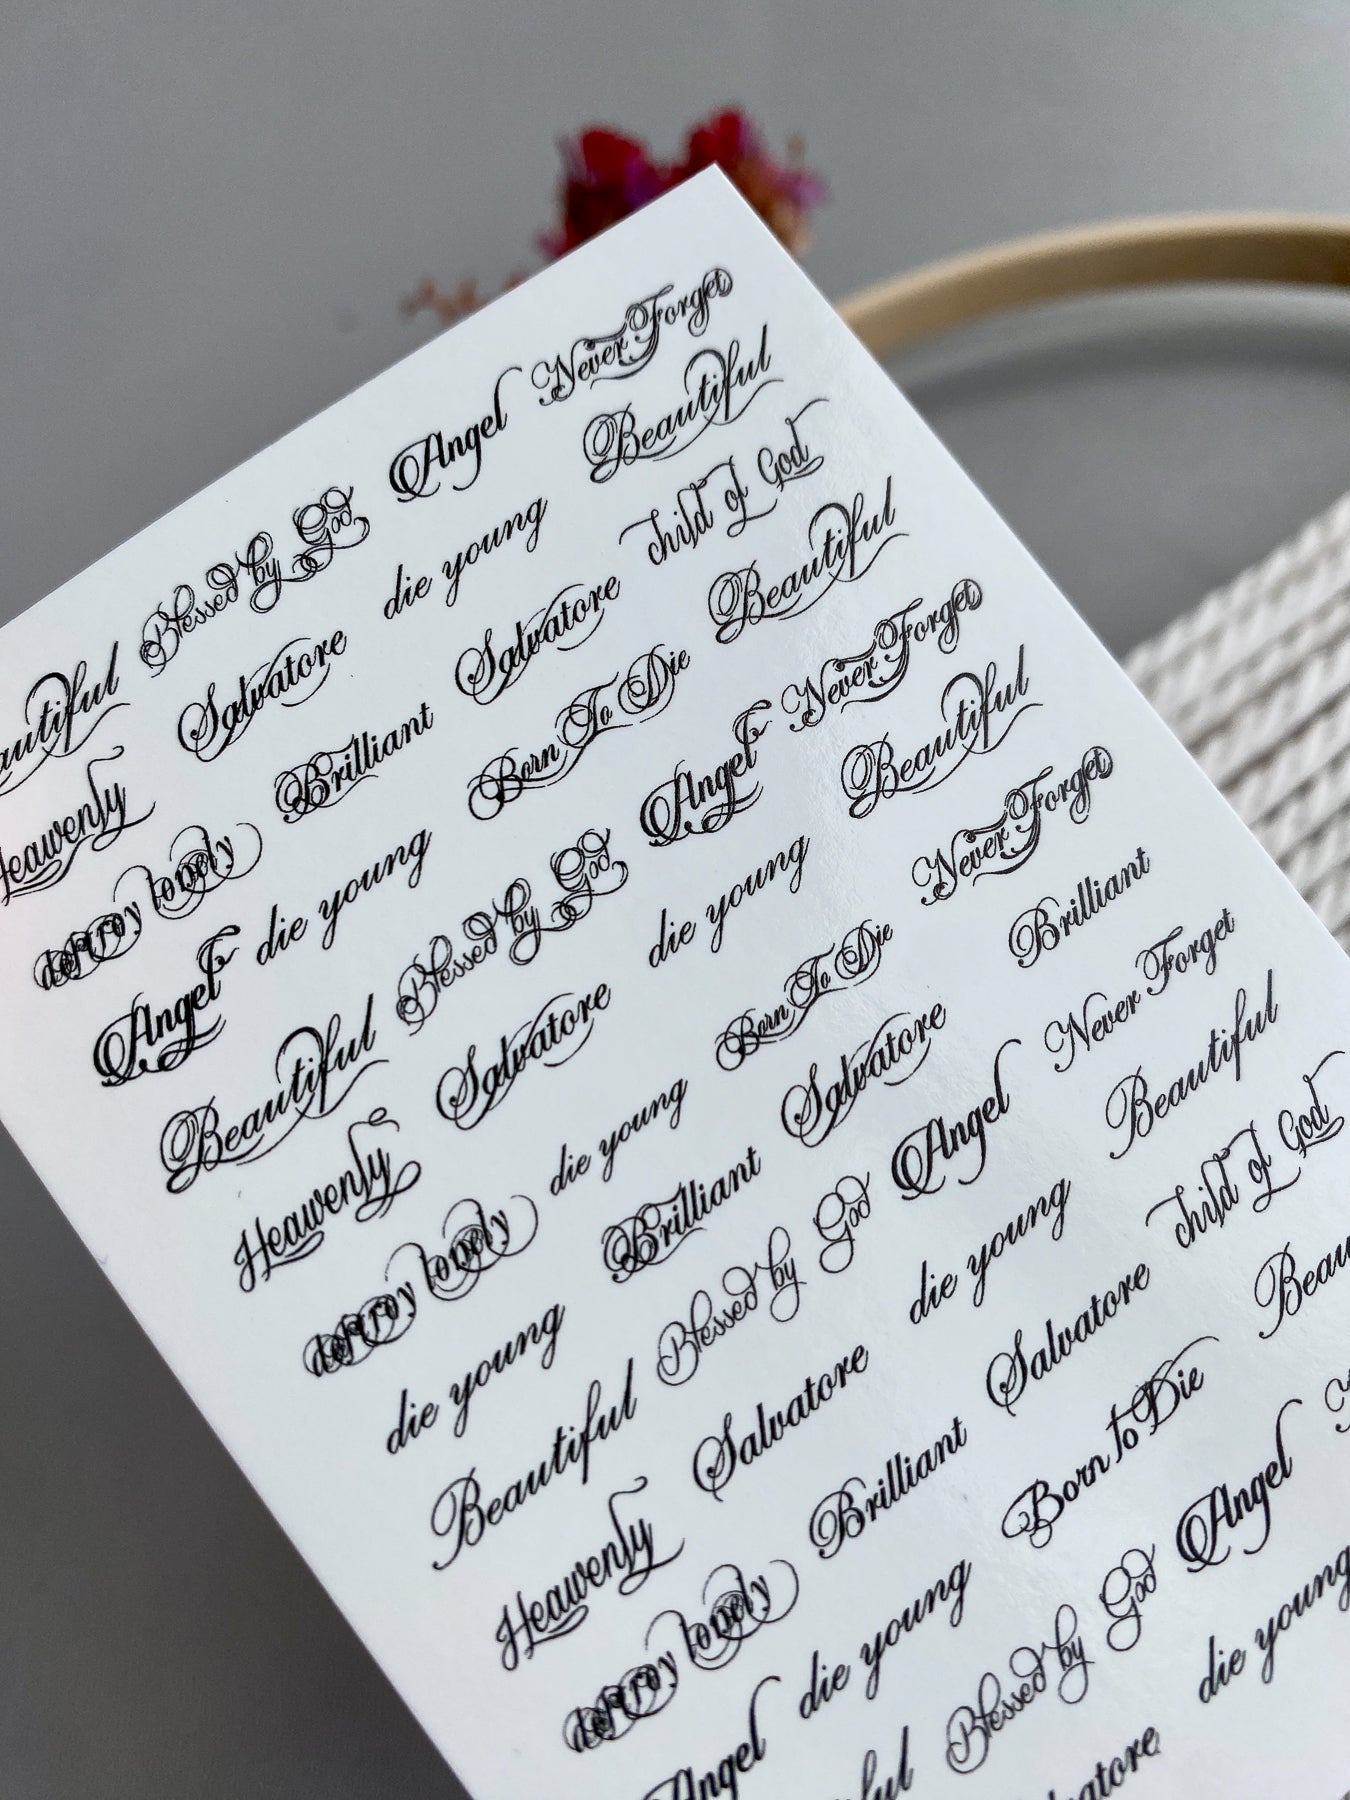 autiful Blessed by God Angel Never Forget
Heavenly Salvatore die young Beautiful
destroy lonely Brilliant Salvatore Child of God
Angel die young Born To Die Beautiful
Beautiful Blessed by God Angel Never Forget
Heavenly Salvatore die young Beautiful
destroy lonely die young Born To Die Never Forget
die young Brilliant Salvatore Brilliant
Beautiful Blessed by God Angel Never Forget
Heavenly Salvatore die young Beautiful
destroy lonely Brilliant Salvatore Child of God
Angel die young Born to Die Beau
ful Blessed by God Angel
vatore die young